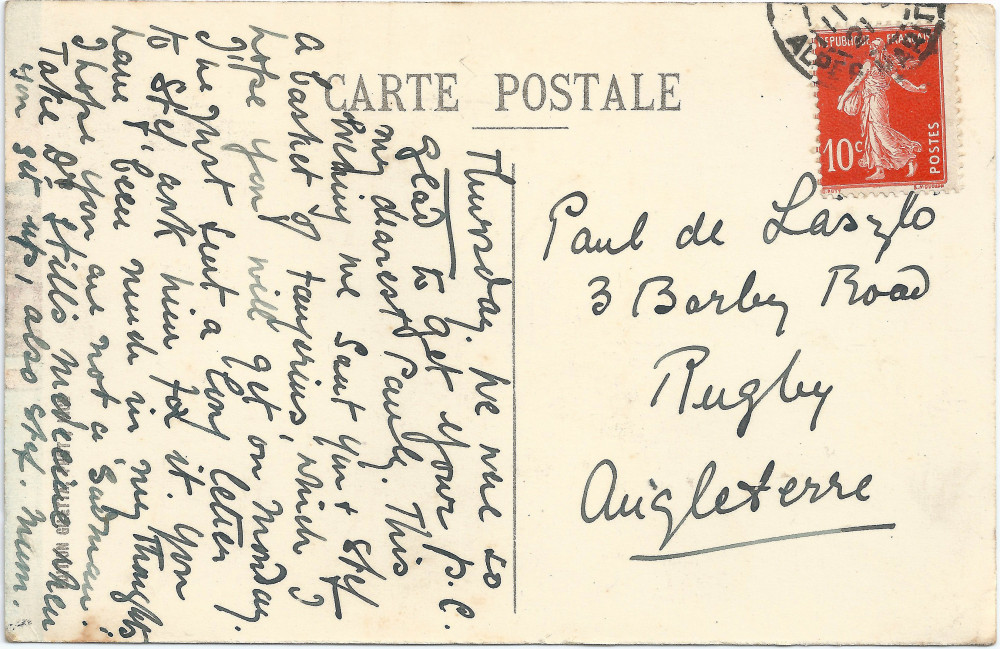 CARTE POSTALE
Thursday. We were so
glad to get your p.c.
my dearest Pauly. This
morning we sent you & Stef
a basket of tangerines, which I
hope you will get on Monday.
I've just sent a long letter
to Stef, ask him for it. You
have been much in my thoughts
I hope you are not a 'badman'.
Take Dr Hills medecine when
you get up, also Stef. Mum.
Paul de László
3 Barby Road
Rugby
Angleterre
REPUBLIQUE FRANCAISE
10c
POSTES